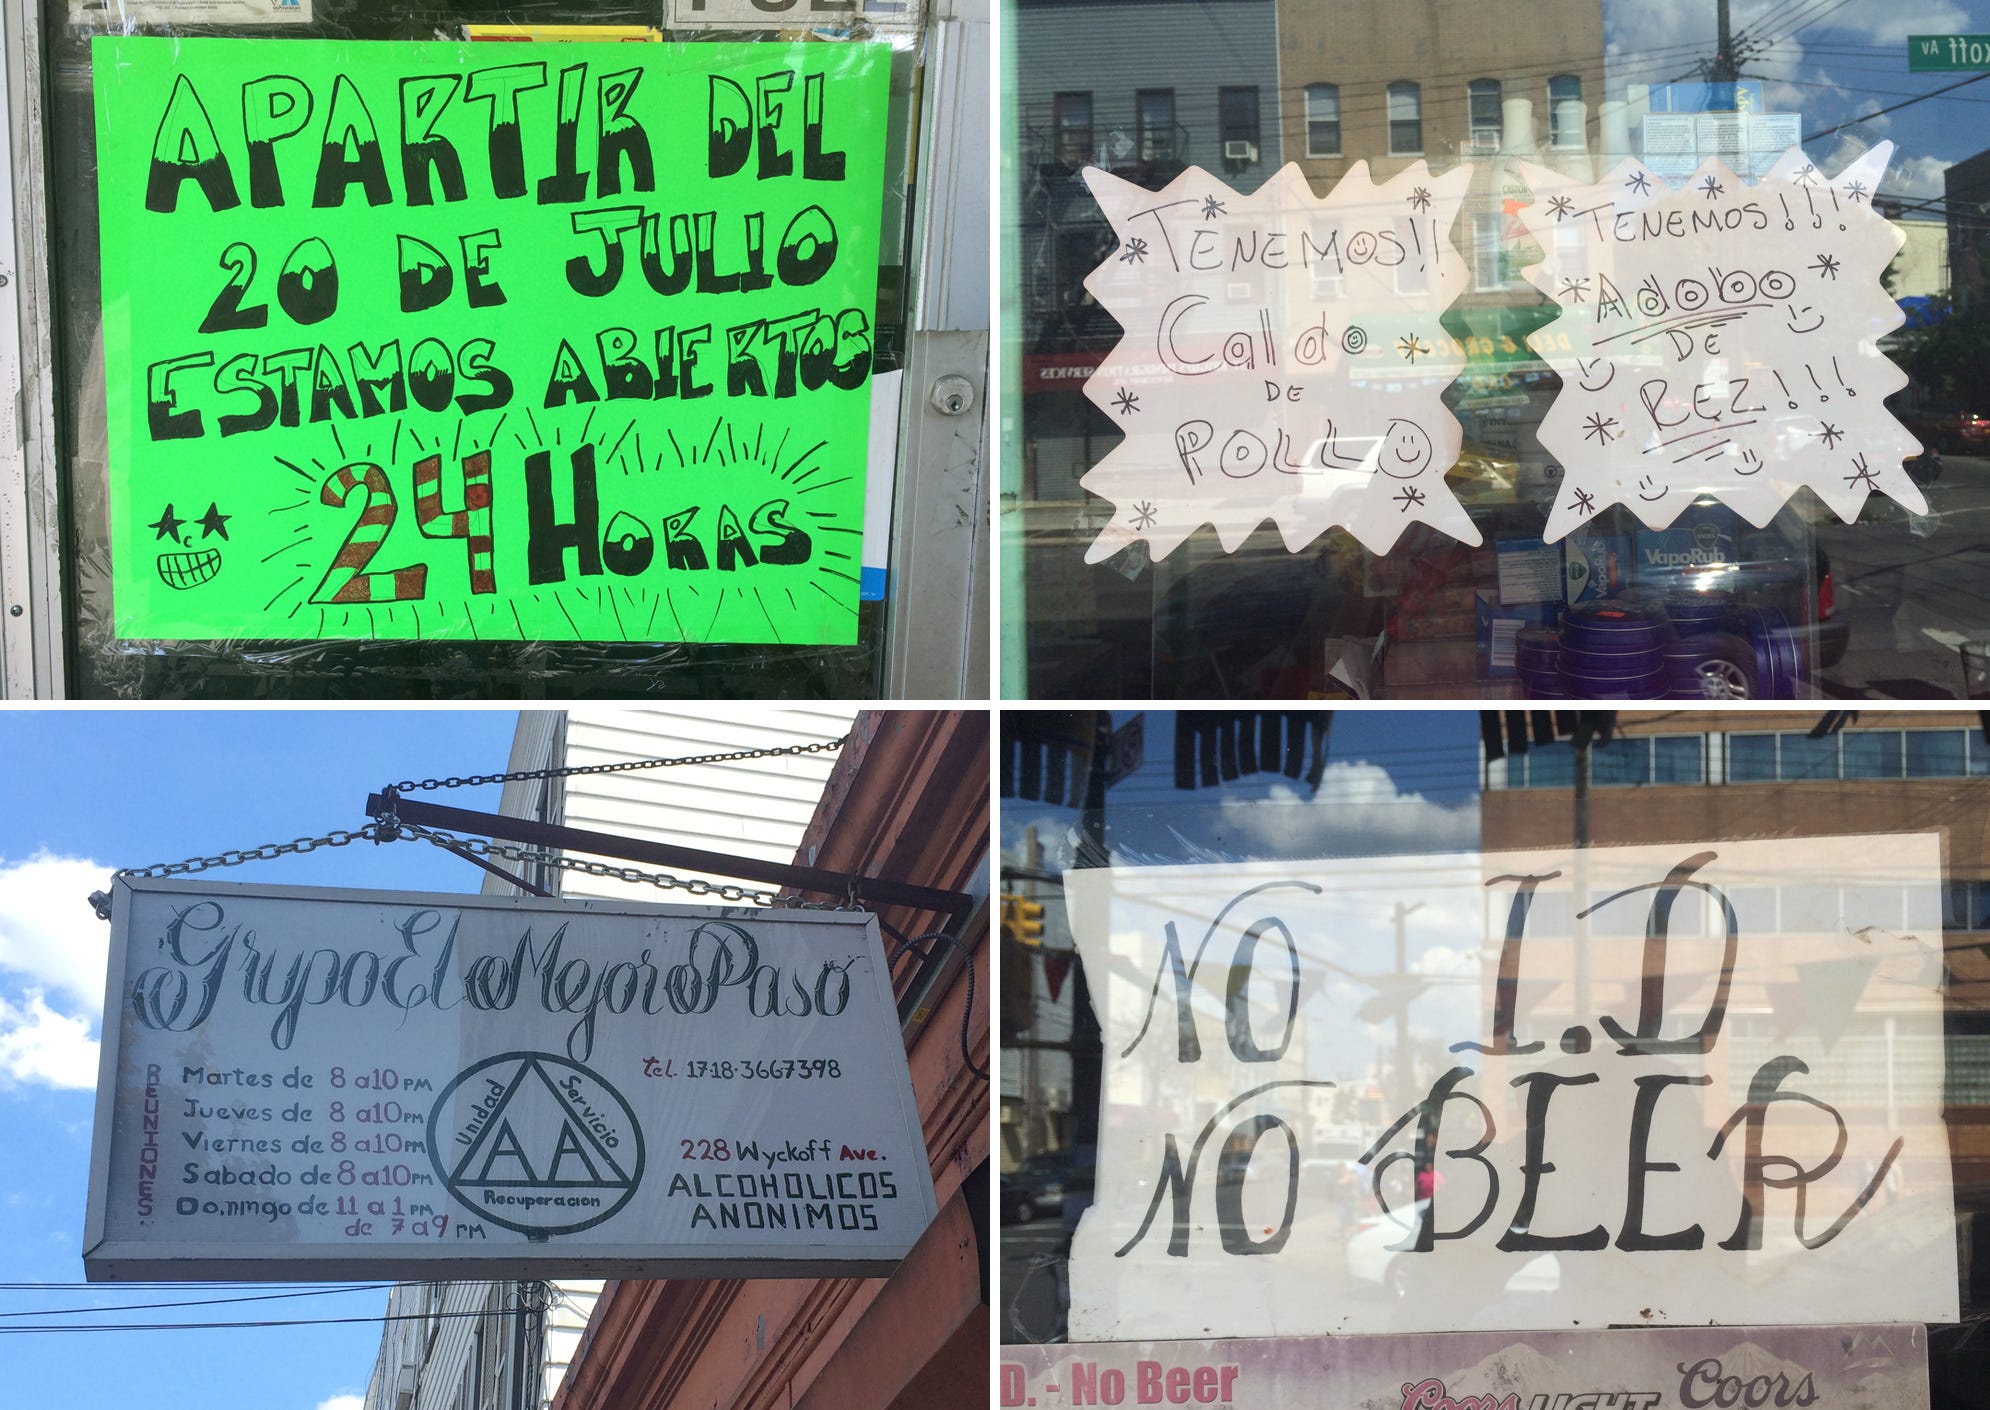 APARTIR DEL
20 DE JULIO
ESTAMOS ABIERTOS
24 HORAS
TENEMOS!!
Caldo
DE
POLLO
TENEMOS!!!
Adobo
DE
REZ!!!
VapoRub
Grupo El Mejor Paso
REUNIONES.
Martes de 8 a 10 PM
Jueves de 8 a 10 PM
Viernes de 8 a 10 PM
Sabado de 8 a 10 PM
Domingo de 11 a 1 PM
de 7 a 9 PM
Unidad
Servicio
AA
Recuperacion
tel. 1718-3667398
228 Wyckoff Ave.
ALCOHOLICOS
ANONIMOS
NO I.D
NO BEER
D. - No Beer
Coors LIGHT
Coors